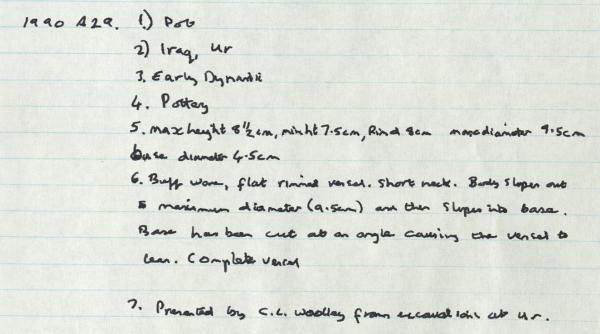 1990 A29. 1.) Pot
2) Iraq, Ur
3. Early Dynastic
4. Pottery
5. max height 8 1/2 cm, min ht 7.5cm, Rim d 8cm max diameter 9.5cm
base diameter 4.5cm
6. Buff ware, flat rimmed vessel. Short neck. Body slopes out
to maximum diameter (9.5cm) and then slopes into base.
Base has been cut at an angle causing the vessel to
lean. Complete vessel
7. Presented by C.L. Woolley from excavations at Ur.